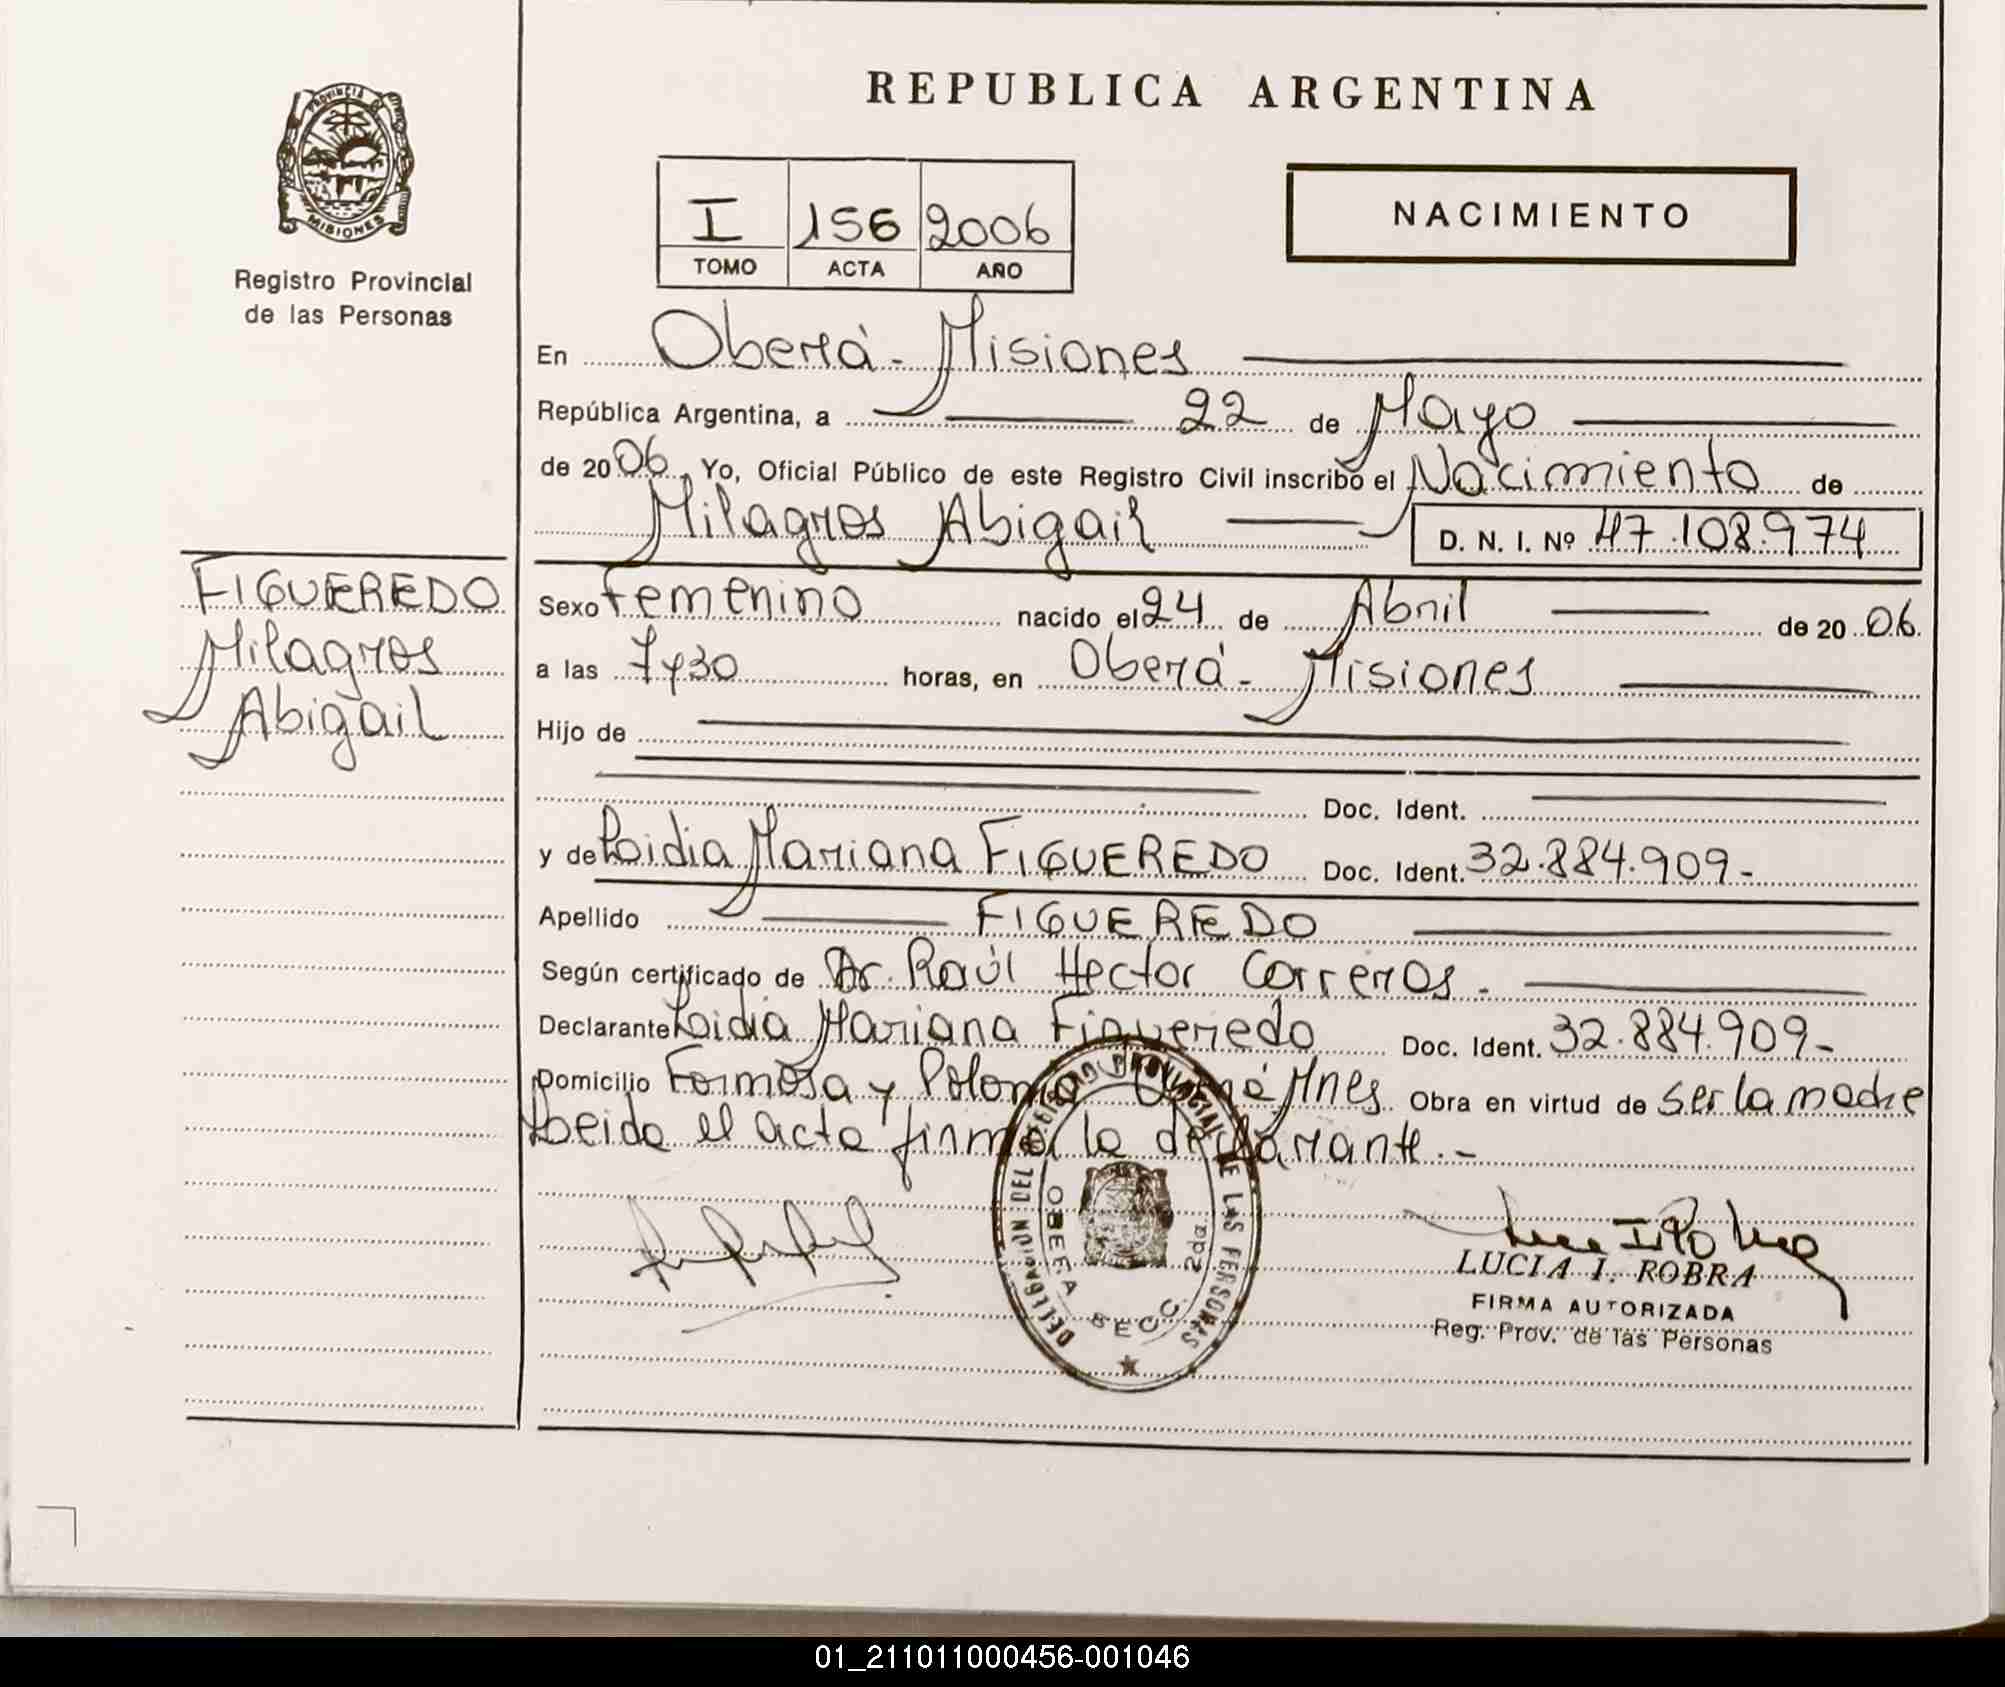 REPUBLICA ARGENTINA
PROVINCIA DE
MISIONES
Registro Provincial
de las Personas
I 156 2006
TOMO ACTA AÑO
NACIMIENTO
En Oberá - Misiones
República Argentina, a 22 de Mayo
de 2006, Yo, Oficial Público de este Registro Civil inscribo el Nacimiento de
Milagros Abigail D. N. I. Nº 47.108.974
FIGUEREDO
Milagros
Abigail
Sexo femenino nacido el 24 de Abril de 2006.
a las 7 y 30 horas, en Oberá - Misiones
Hijo de
Doc. Ident.
y de Loidia Mariana FIGUEREDO Doc. Ident. 32.884.909-
Apellido FIGUEREDO
Según certificado de Dr. Raúl Hector Correros.
Declarante Loidia Mariana Figueredo Doc. Ident. 32.884.909-
Domicilio Formosa y Polonia Ines Obra en virtud de ser la madre
Leida el acta firma la declarante.-
DELEGACION DEL REGISTRO PROVINCIAL DE LAS PERSONAS
OBERA SECC. 2da.
LUCIA I. ROBRA
FIRMA AUTORIZADA
Reg. Prov. de las Personas
01_211011000456-001046